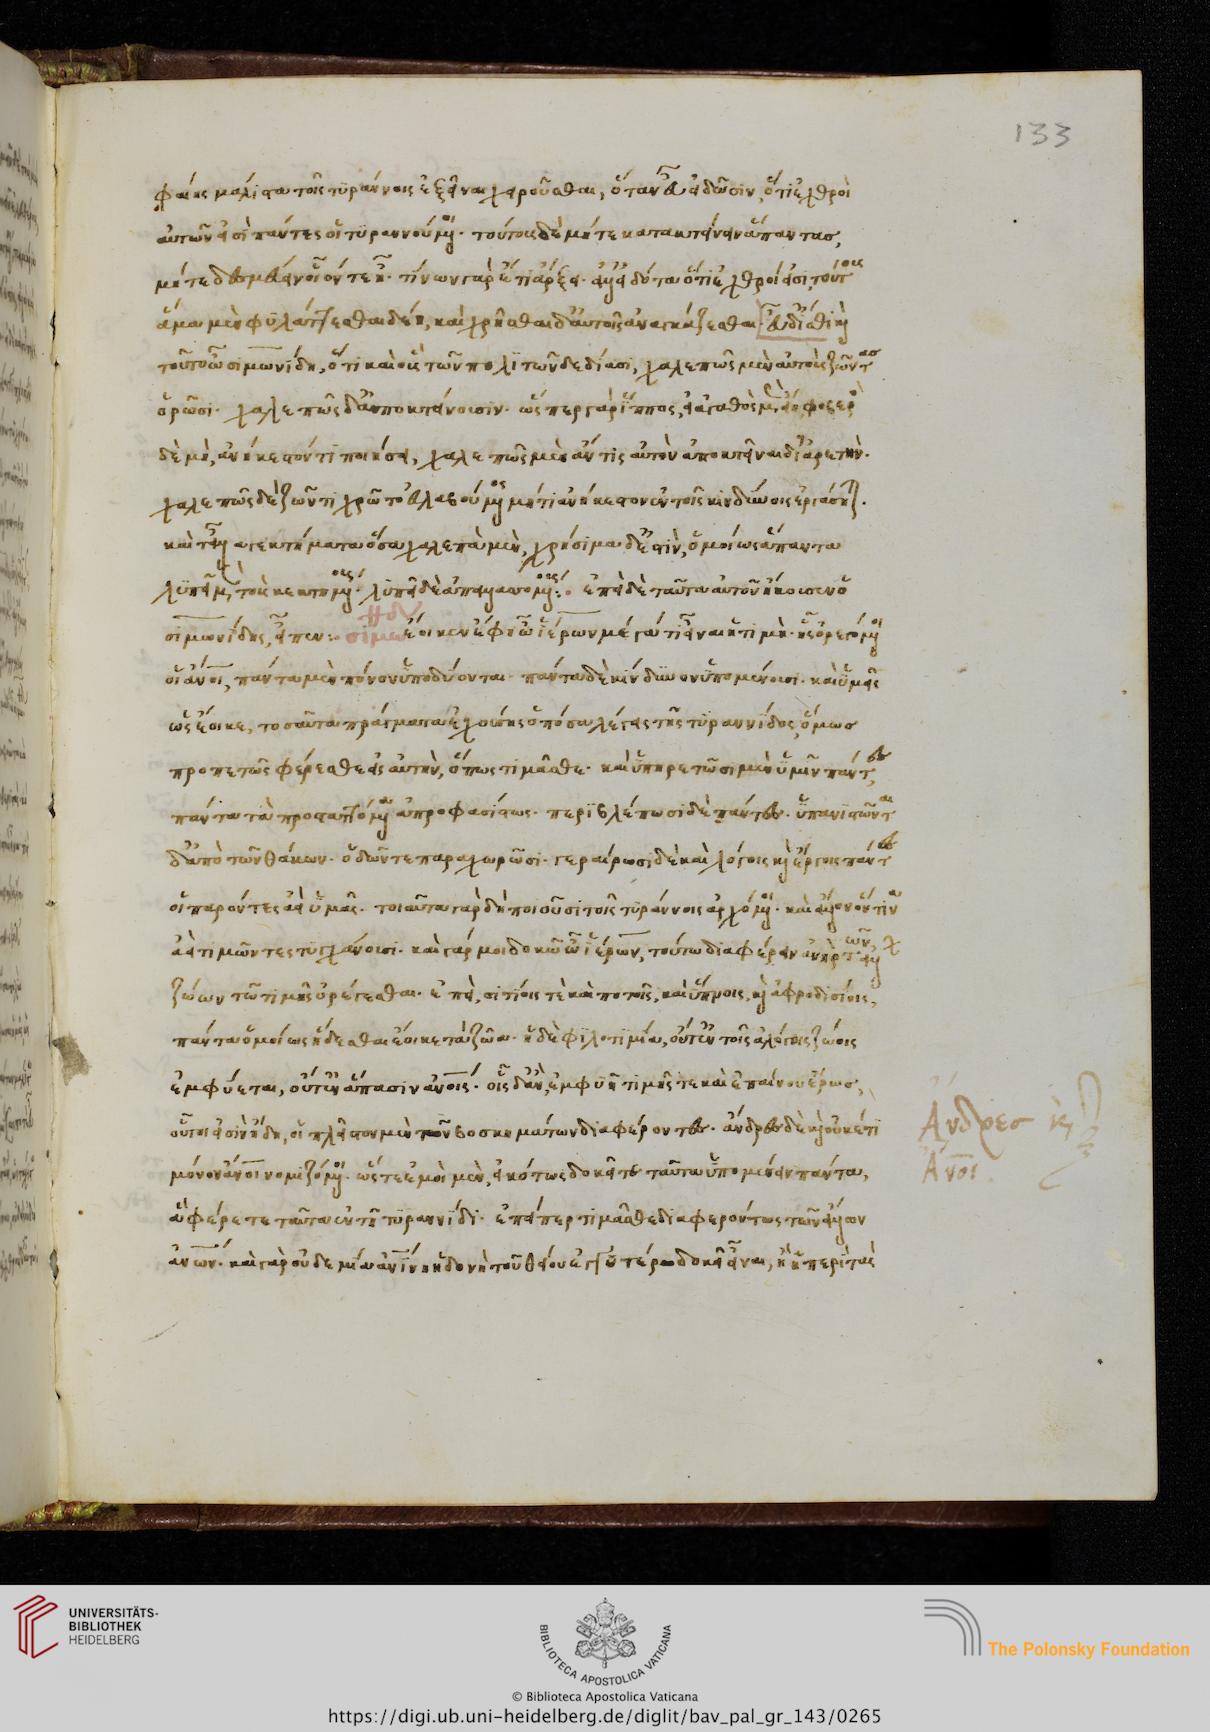 133
φαίης μάλιστα τοῖς τυράννοις ἐξεῖναι χρῆσθαι, ὅταν εὖ εἰδῶσιν, ὅτι ἐχθροὶ
αὐτῶν εἰσὶ πάντες οἱ τυραννούμενοι· τούτους δὲ μήτε κατακτείνειν ἅπαντας,
μήτε δεσμεύειν οἷόν τε ᾖ· τίνων γὰρ ἔτι ἄρξει· ἀλλ' εἰδότα ὅτι ἐχθροί εἰσι, τούτους
ἅμα μὲν φυλάττεσθαι δέῃ, καὶ χρῆσθαι δ' αὐτοῖς ἀναγκάζεσθαι· εὖ δ' ἴσθι καὶ
τοῦτο ὦ σιμωνίδη, ὅτι καὶ οὓς τῶν πολιτῶν δεδίασι, χαλεπῶς μὲν αὐτοὺς ζῶντας
ὁρῶσι· χαλεπῶς δ' ἀποκτείνουσιν· ὥσπερ γὰρ ἵππος, εἰ ἀγαθὸς μὲν εἴη, φοβερὸς
δὲ μὴ, ἀνήκεστόν τι ποιήσῃ, χαλεπῶς μὲν ἄν τις αὐτὸν ἀποκτείναι δι' ἀρετήν·
χαλεπῶς δὲ ζῶντι χρῷτο εὐλαβούμενος μή τι ἀνήκεστον ἐν τοῖς κινδύνοις ἐργάσηται·
καὶ τἆλλά γε κτήματα ὅσα χαλεπὰ μὲν, χρήσιμα δ' ἐστὶν, ὁμοίως ἅπαντα
λυπεῖ μὲν τοὺς κεκτημένους· λυπεῖ δὲ ἀπαλλαττομένους:· ἐπεὶ δὲ ταῦτα αὐτοῦ ἤκουσεν ὁ
σιμωνίδης, εἶπεν:· ἔοικεν ἔφη ὦ ἱέρων μέγα τι εἶναι ἡ τιμὴ· ἧς ὀρεγόμενοι
οἱ ἄνοι, πάντα μὲν πόνον ὑποδύονται· πάντα δὲ κίνδυνον ὑπομένουσι· καὶ ὑμεῖς
ὡς ἔοικε, τοσαῦτα πράγματα ἐχούσης ὁπόσα λέγεις τῆς τυραννίδος, ὅμως
προπετῶς φέρεσθε εἰς αὐτὴν, ὅπως τιμᾶσθε· καὶ ὑπηρετῶσι μὲν ὑμῖν πάντες
πάντα τὰ προσταττόμενα ἀπροφασίστως· περιβλέπωσι δὲ πάντες· ὑπανιστῶνται
δ' ἀπὸ τῶν θάκων· ὁδῶν τε παραχωρῶσι· γεραίρωσι δὲ καὶ λόγοις καὶ ἔργοις πάντες
οἱ παρόντες ἀεὶ ὑμᾶς· τοιαῦτα γὰρ δὴ ποιοῦσι τοῖς τυράννοις ἀρχόμενοι· καὶ ἄλλον ὅντιν
ἀεὶ τιμῶντες τυγχάνουσι· καὶ γάρ μοι δοκεῖ ὦ ἱέρων, τούτῳ διαφέρειν ἀνὴρ τῶν ἄλλων
ζώων τῷ τιμῆς ὀρέγεσθαι· ἐπεὶ, σιτίοις τὲ καὶ ποτοῖς, καὶ ὕπνοις, καὶ ἀφροδισίοις,
πάντα ὁμοίως ἥδεσθαι ἔοικε τὰ ζῶα· ἡ δὲ φιλοτιμία, οὔτ' ἐν τοῖς ἀλόγοις ζώοις
ἐμφύεται, οὔτ' ἐν ἅπασιν ἀνοις· οἷς δ' ἂν, ἐμφυῆ τιμῆς τε καὶ ἐπαίνου ἔρως,
οὗτοι εἰσὶν ἤδη, οἱ πλεῖστον μὲν τῶν βοσκημάτων διαφέροντες· ἄνδρες δὲ καὶ οὐκέτι
μόνον ἄνοι νομιζόμενοι· ὥστε ἐμοὶ μὲν, εἰκότως δοκεῖτε ταῦτα ὑπομένειν πάντα,
ἃ φέρετε ταῦτα ἐν τῇ τυραννίδι· ἐπείπερ τιμᾶσθε διαφερόντως τῶν ἄλλων
ἀνων· καὶ γὰρ οὐδεμία ἀνίνη ἡδονὴ τοῦ θείου ἐγγυτέρω δοκεῖ εἶναι, ἢ ἡ περὶ τὰς
Ἄνδρες καὶ
Ἄνοι.
UNIVERSITÄTS-
BIBLIOTHEK
HEIDELBERG
BIBLIOTECA APOSTOLICA VATICANA
The Polonsky Foundation
© Biblioteca Apostolica Vaticana
https://digi.ub.uni-heidelberg.de/diglit/bav_pal_gr_143/0265